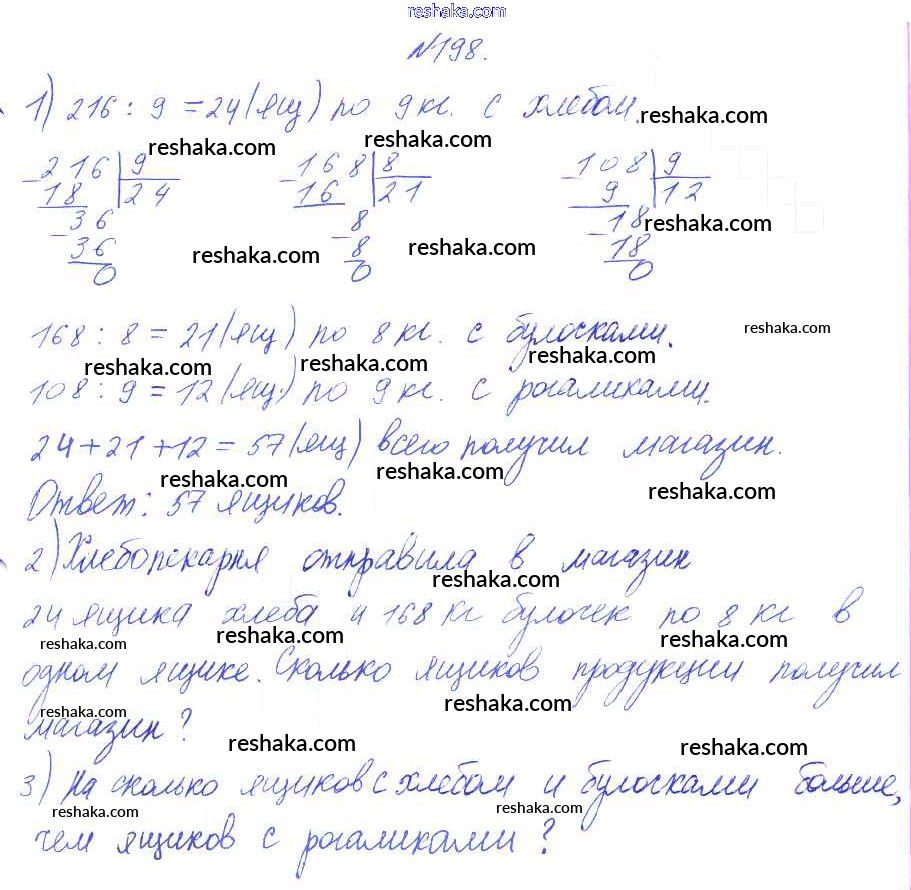 reshaka.com
№198.
1) 216 : 9 = 24 (ящ) по 9 кг. с хлебом.
reshaka.com
reshaka.com reshaka.com
- 216 | 9 - 168 | 8 - 108 | 9
18 | 24 16 | 21 9 | 12
- 36 - 8 - 18
reshaka.com
36 8 18
reshaka.com reshaka.com
0 0 0
168 : 8 = 21 (ящ) по 8 кг. с булосками.
reshaka.com
reshaka.com reshaka.com reshaka.com
108 : 9 = 12 (ящ.) по 9 кг. с рогаликами.
24 + 21 + 12 = 57 (ящ) всего получил магазин.
reshaka.com reshaka.com reshaka.com
Ответ: 57 ящиков.
2) Хлебопекарня отправила в магазин
reshaka.com
24 ящика хлеба и 168 кг булочек по 8 кг в
reshaka.com reshaka.com reshaka.com
одном ящике. Сколько ящиков продукции получил
reshaka.com reshaka.com
магазин?
reshaka.com reshaka.com
3) На сколько ящиков с хлебом и булосками больше,
reshaka.com reshaka.com
чем ящиков с рогаликами?